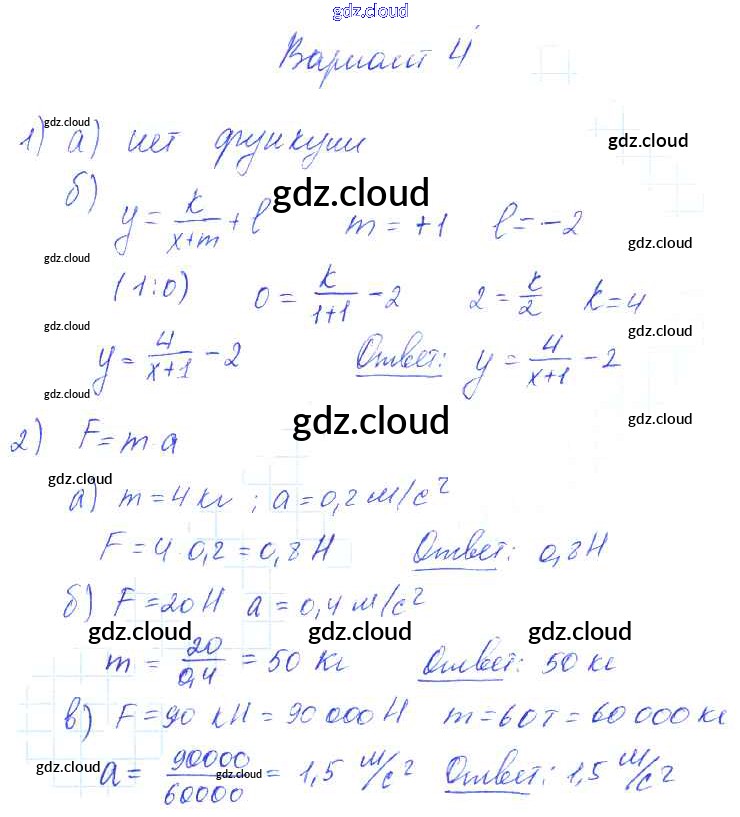 gdz.cloud
Вариант 4
gdz.cloud
1) а) нет функции
gdz.cloud
б) y = k/(x+m) + l   m = +1   l = -2
gdz.cloud
gdz.cloud
gdz.cloud
(1:0)   0 = k/(1+1) - 2   2 = k/2   k = 4
gdz.cloud
gdz.cloud
y = 4/(x+1) - 2   Ответ: y = 4/(x+1) - 2
gdz.cloud
gdz.cloud
gdz.cloud
2) F = m a
gdz.cloud
а) m = 4 кг ; a = 0,2 м/с²
F = 4 · 0,2 = 0,8 Н   Ответ: 0,8 Н
б) F = 20 Н   a = 0,4 м/с²
gdz.cloud   gdz.cloud   gdz.cloud
m = 20/0,4 = 50 кг   Ответ: 50 кг
в) F = 90 кН = 90 000 Н   m = 60 т = 60 000 кг
gdz.cloud   gdz.cloud   gdz.cloud
a = 90000/60000 = 1,5 м/с²   Ответ: 1,5 м/с²